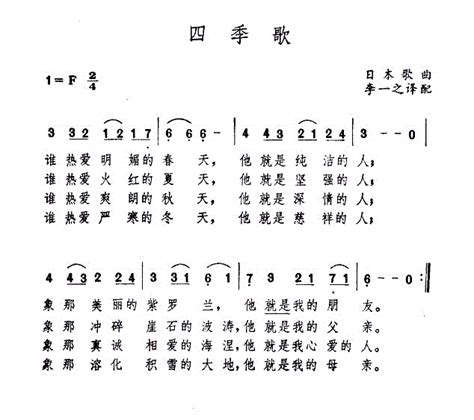 四季歌
1=F 2/4
日本歌曲
李一之译配
3 332 | 1217 | 6 66- | 4 43 2421 | 3 - - 0 |
谁热爱明媚的春天，他就是纯洁的人；
谁热爱火红的夏天，他就是坚强的人；
谁热爱爽朗的秋天，他就是深情的人；
谁热爱严寒的冬天，他就是慈祥的人；
象那美丽的紫罗兰，他就是我的朋友。
象那冲碎崖石的波涛，他就是我的父亲。
象那真诚相爱的海涅，他就是我心爱的人。
象那溶化积雪的大地，他就是我的母亲。